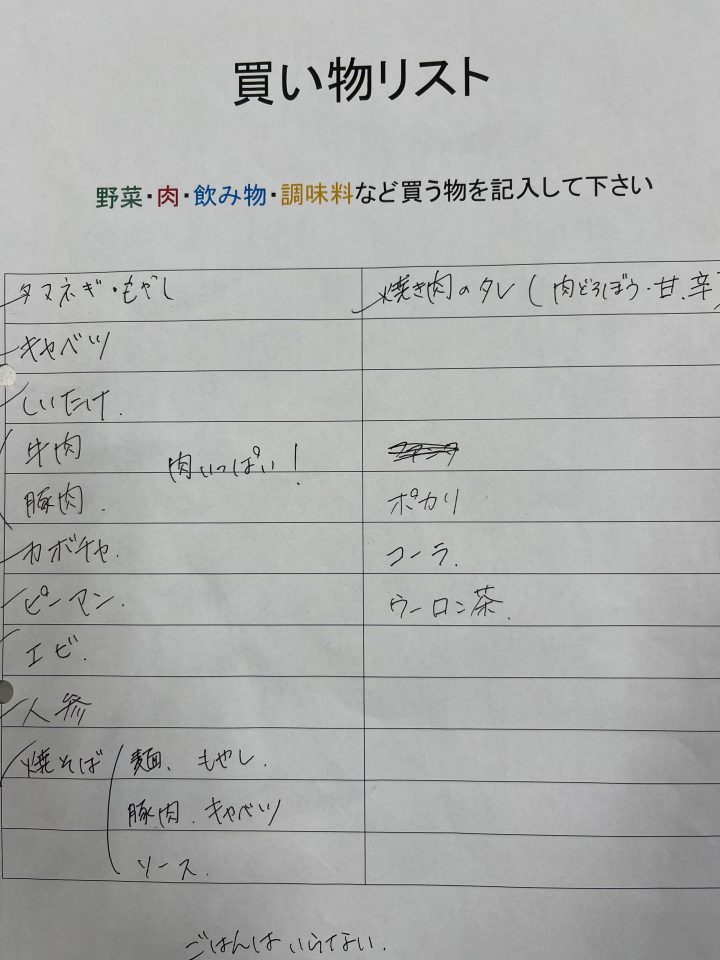 買い物リスト
野菜・肉・飲み物・調味料など買う物を記入して下さい
タマネギ・もやし
キャベツ
しいたけ.
牛肉
肉いっぱい!
豚肉.
カボチャ.
ピーマン.
エビ.
人参
焼そば 麺、もやし.
豚肉、キャベツ
ソース.
焼き肉のタレ(肉どろぼう・甘、辛)
ポカリ
コーラ.
ウーロン茶.
ごはんはいらない.